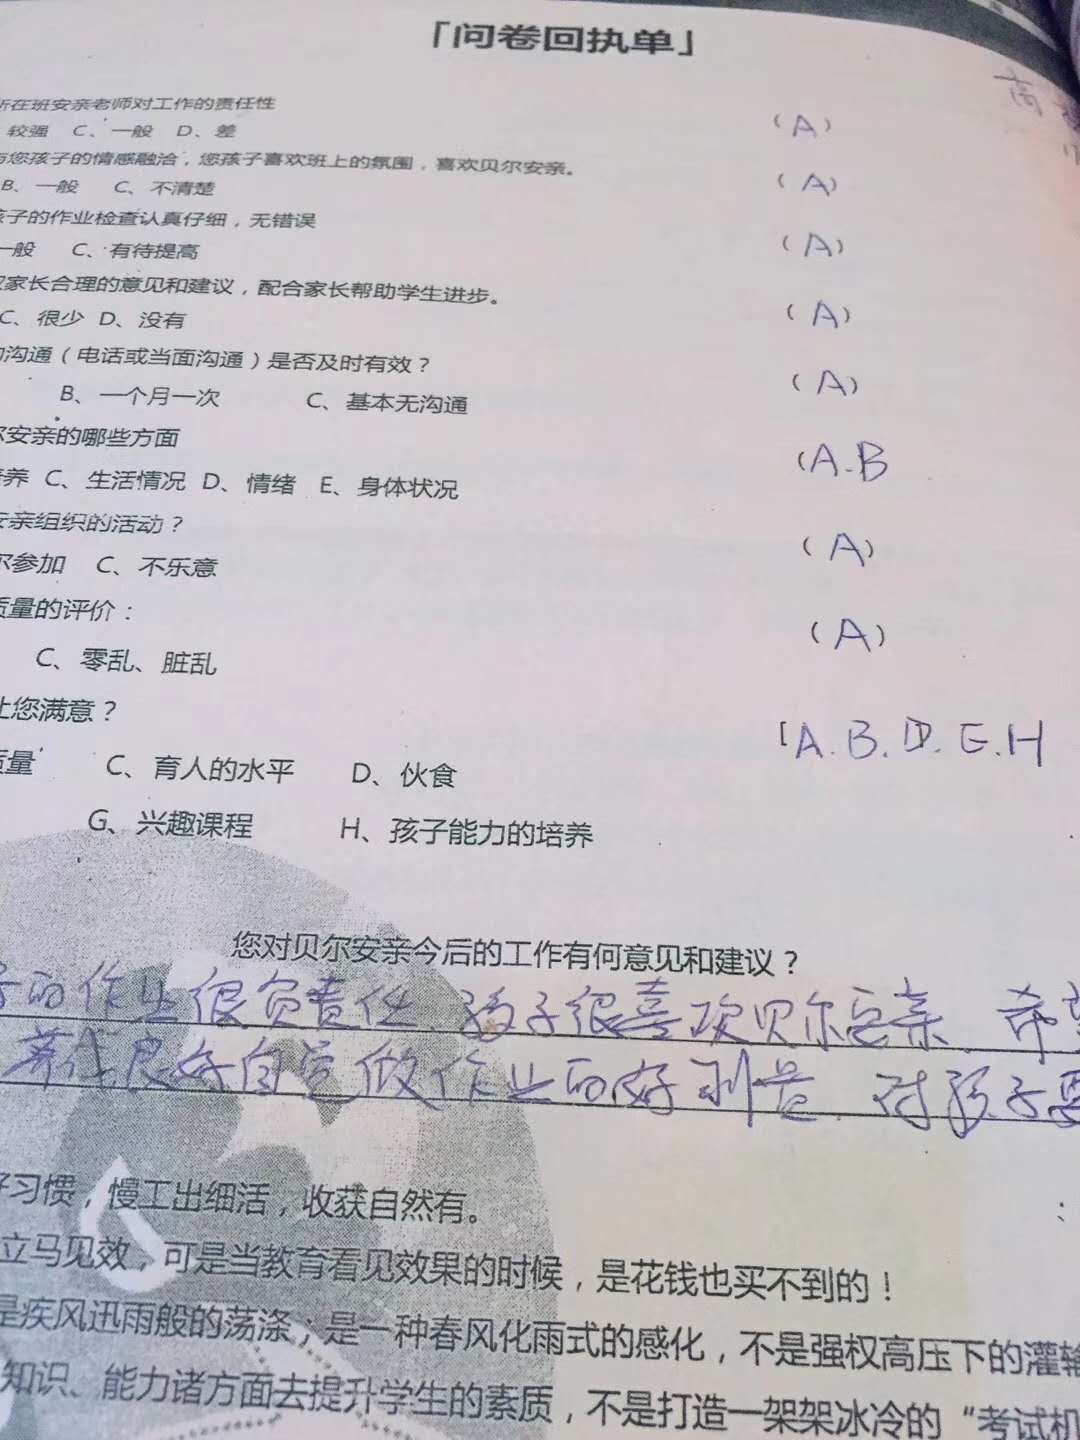 「问卷回执单」
高
所在班安亲老师对工作的责任性 (A)
较强 C、一般 D、差
与您孩子的情感融洽，您孩子喜欢班上的氛围，喜欢贝尔安亲。 (A)
B、一般 C、不清楚
孩子的作业检查认真仔细，无错误 (A)
一般 C、有待提高
家长合理的意见和建议，配合家长帮助学生进步。 (A)
C、很少 D、没有
沟通（电话或当面沟通）是否及时有效？ (A)
B、一个月一次 C、基本无沟通
尔安亲的哪些方面 (A.B
养 C、生活情况 D、情绪 E、身体状况
安亲组织的活动？ (A)
尔参加 C、不乐意
质量的评价： (A)
C、零乱、脏乱
让您满意？ [A.B.D.E.H
质量 C、育人的水平 D、伙食
G、兴趣课程 H、孩子能力的培养
您对贝尔安亲今后的工作有何意见和建议？
子的作业很负责任、孩子很喜欢贝尔安亲、希望
养成良好自觉做作业的好习惯、对孩子要
好习惯，慢工出细活，收获自然有。
立马见效，可是当教育看见效果的时候，是花钱也买不到的！
是疾风迅雨般的荡涤；是一种春风化雨式的感化，不是强权高压下的灌输
知识、能力诸方面去提升学生的素质，不是打造一架架冰冷的“考试机